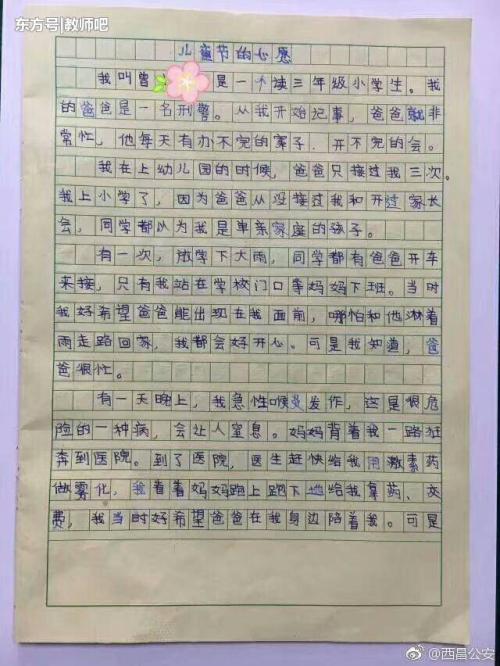 东方号|教师吧
儿童节的心愿
我叫曾是一个读三年级小学生。我
的爸爸是一名刑警。从我开始记事，爸爸就非
常忙，他每天有办不完的案子，开不完的会。
我在上幼儿园的时候，爸爸只接过我三次。
我上小学了，因为爸爸从没接过我和开过家长
会，同学都以为我是单亲家庭的孩子。
有一次，放学下大雨，同学都有爸爸开车
来接，只有我站在学校门口等妈妈下班。当时
我好希望爸爸能出现在我面前，哪怕和他淋着
雨走路回家，我都会好开心。可是我知道，爸
爸很忙。
有一天晚上，我急性喉炎发作，这是很危
险的一种病，会让人窒息。妈妈背着我一路狂
奔到医院。到了医院，医生赶快给我用激素药
做雾化，我看着妈妈跑上跑下地给我拿药、交
费，我当时好希望爸爸在我身边陪着我。可是
@西昌公安